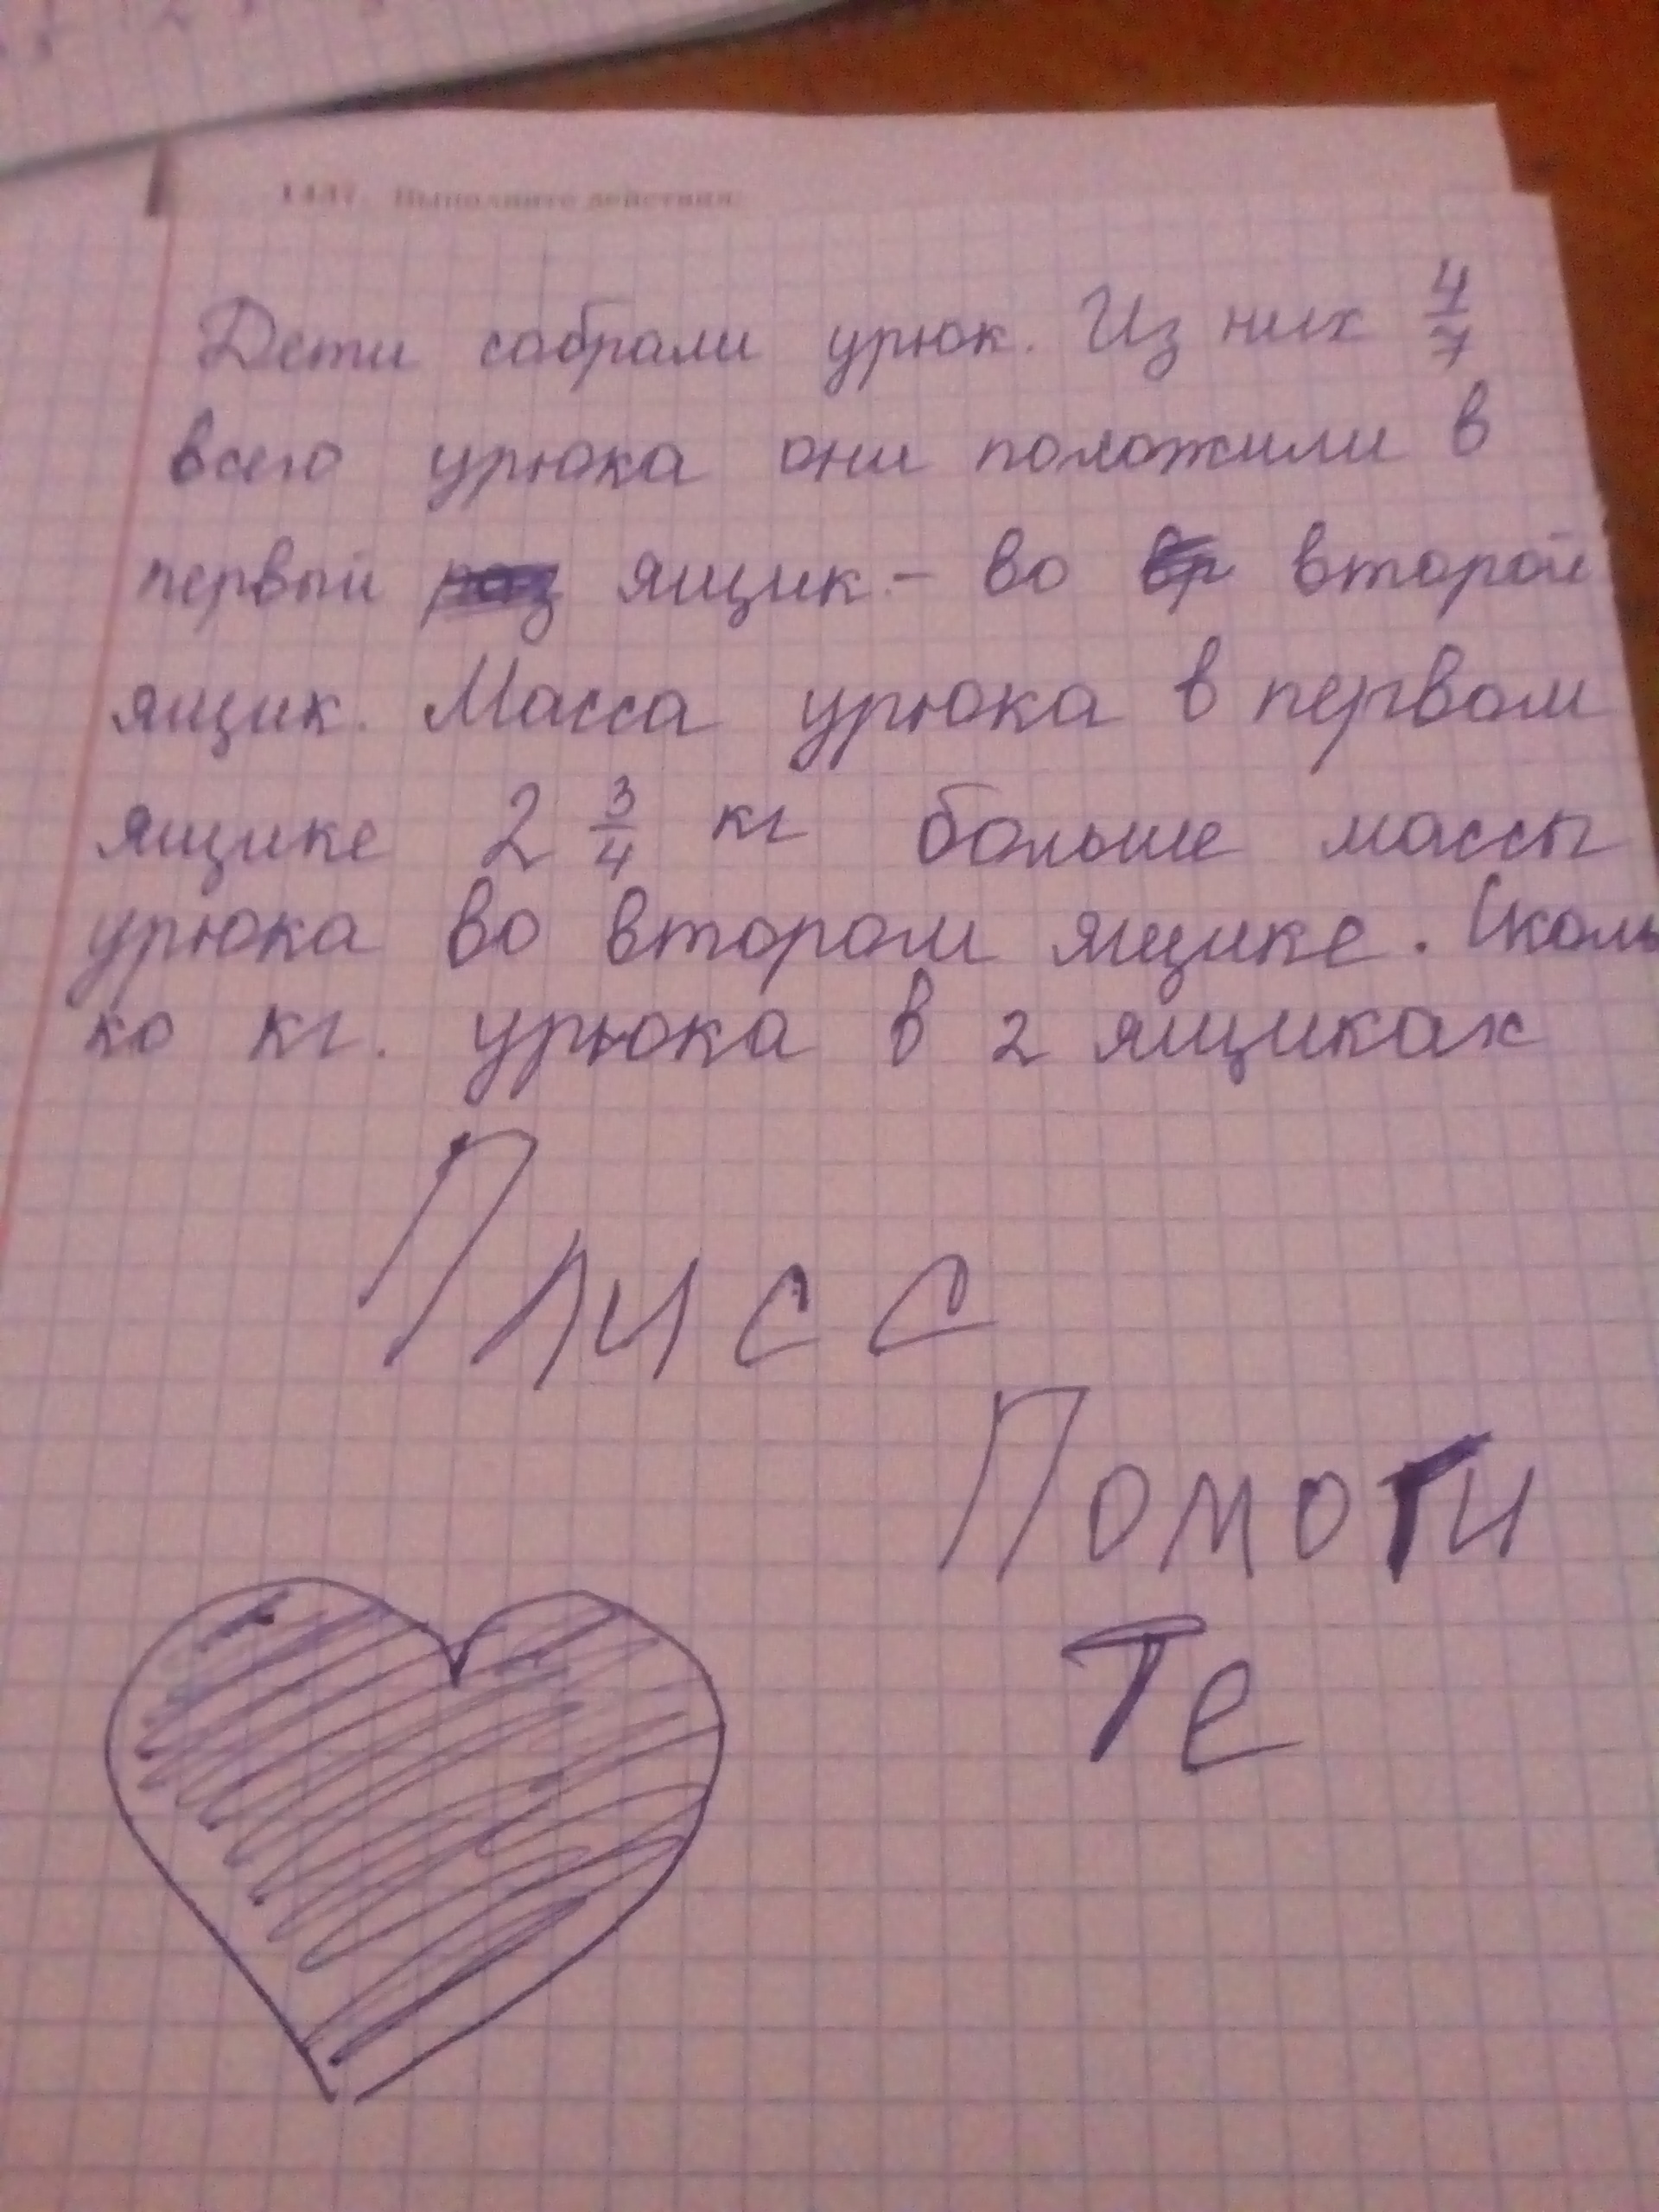 1437. Выполните действия:
Дети собрали урюк. Из них 4/7
всего урюка они положили в
первый ящик - во второй
ящик. Масса урюка в первом
ящике 2 3/4 кг больше массы
урюка во втором ящике. Сколь
ко кг. урюка в 2 ящиках
Плисс
Помоги
Те